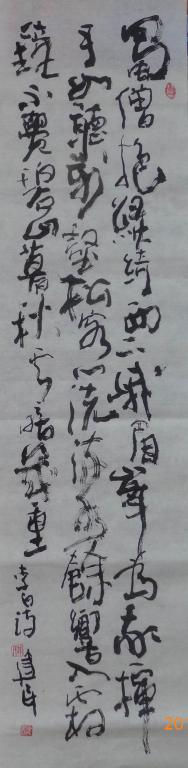 蜀僧抱綠綺西下峨眉峰為我一揮
手如聽萬壑松客心洗流水餘響入霜
鐘不覺碧山暮秋雲暗幾重 李白詩
20